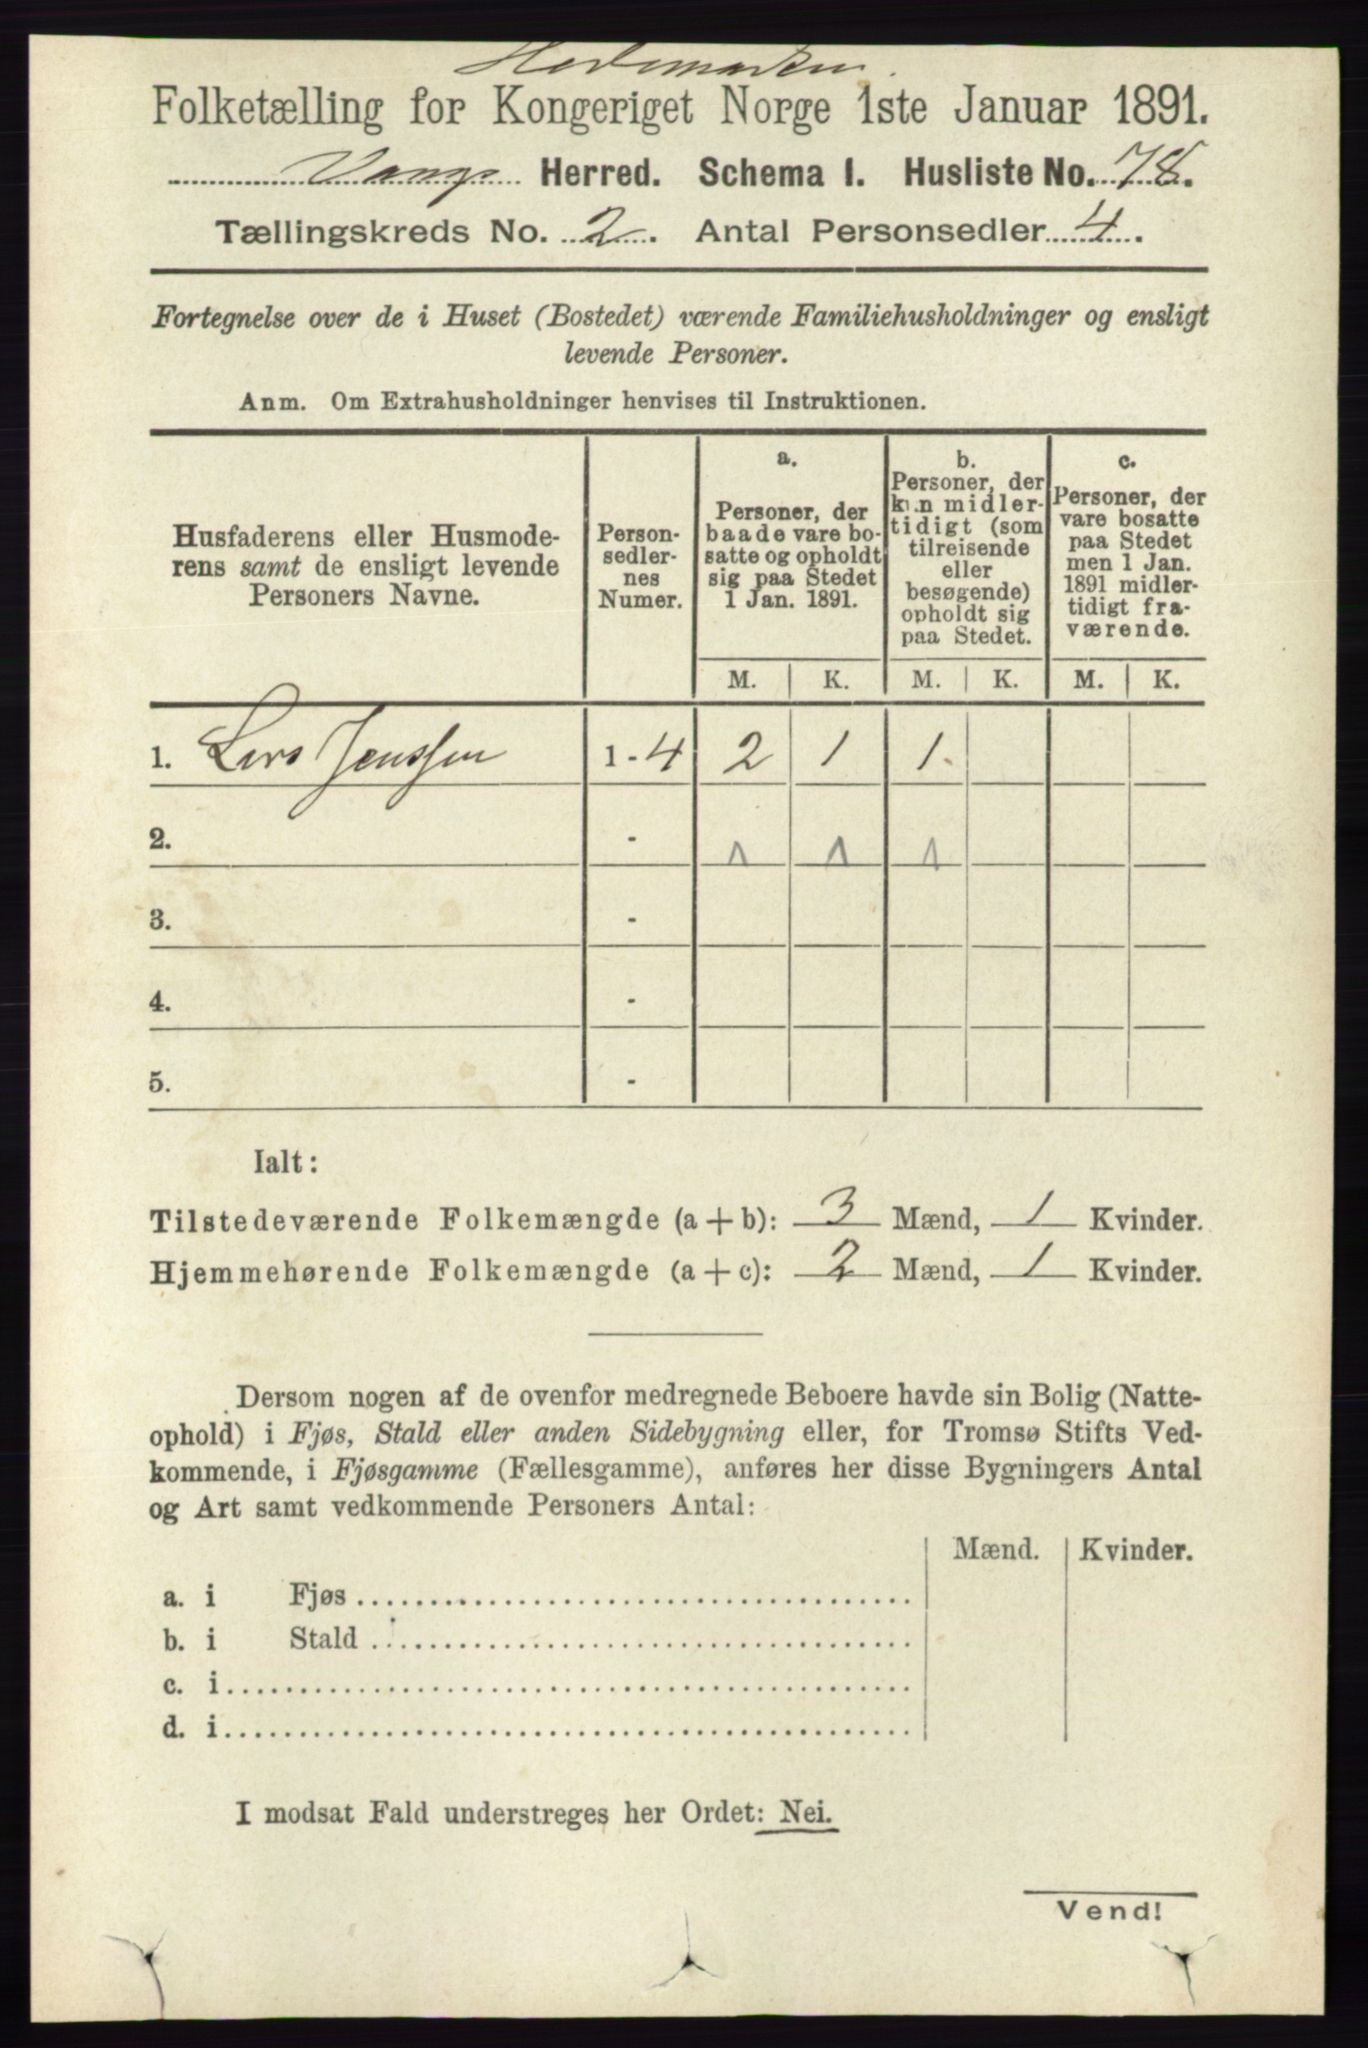 Hedemarken.
Folketælling for Kongeriget Norge 1ste Januar 1891.
Vang Herred. Schema I. Husliste No. 78.
Tællingskreds No. 2. Antal Personsedler 4.
Fortegnelse over de i Huset (Bostedet) værende Familiehusholdninger og ensligt
levende Personer.
Anm. Om Extrahusholdninger henvises til Instruktionen.
Husfaderens eller Husmode-
rens samt de ensligt levende
Personers Navne.
Person-
sedler-
nes
Numer.
a.
Personer, der
baade vare bo-
satte og opholdt
sig paa Stedet
1 Jan. 1891.
b.
Personer, der
kun midler-
tidigt (som
tilreisende
eller
besøgende)
opholdt sig
paa Stedet.
c.
Personer, der
vare bosatte
paa Stedet
men 1 Jan.
1891 midler-
tidigt fra-
værende.
M. K. M. K. M. K.
1. Lars Jenssen 1 - 4 2 1 1.
2. - 1 1 1
3. -
4. -
5. -
Ialt:
Tilstedeværende Folkemængde (a + b): 3 Mænd, 1 Kvinder.
Hjemmehørende Folkemængde (a + c): 2 Mænd, 1 Kvinder.
Dersom nogen af de ovenfor medregnede Beboere havde sin Bolig (Natte-
ophold) i Fjøs, Stald eller anden Sidebygning eller, for Tromsø Stifts Ved-
kommende, i Fjøsgamme (Fællesgamme), anføres her disse Bygningers Antal
og Art samt vedkommende Personers Antal:
Mænd. Kvinder.
a. i Fjøs
b. i Stald
c. i
d. i
I modsat Fald understreges her Ordet: Nei.
Vend!